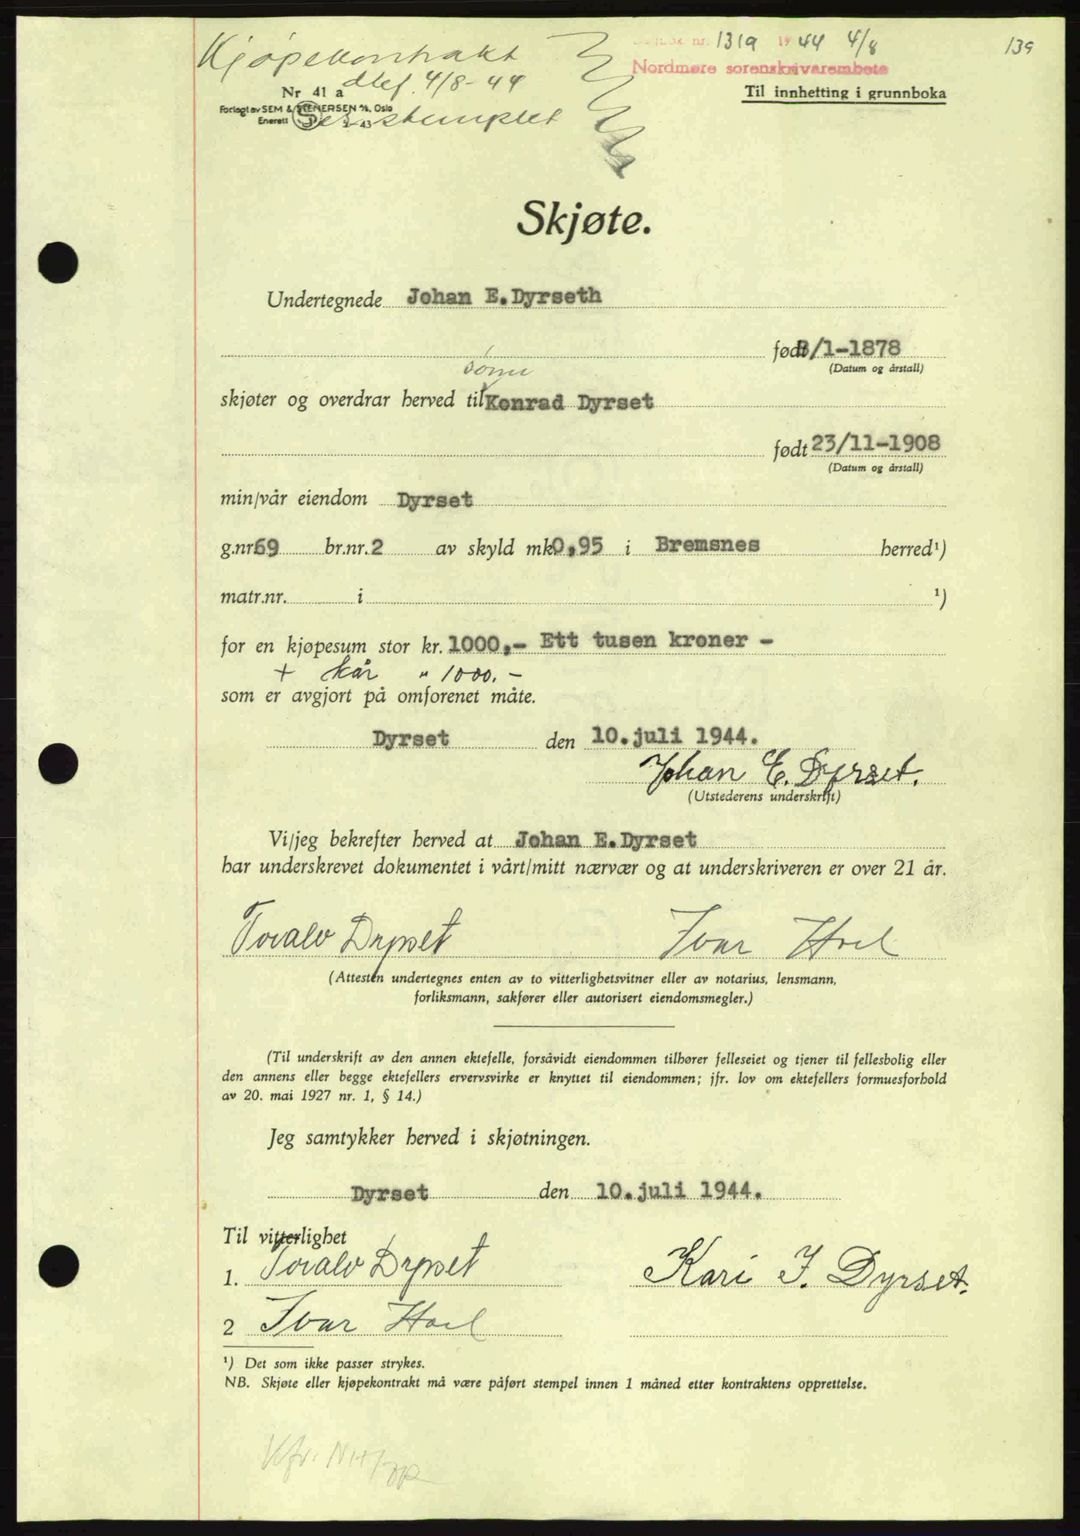 Kjøpekontrakt
dtef. 4/8-44
stemplet
nr. 1319 1944 4/8
139
Nordmøre sorenskrivarembete
Nr 41 a
Til innhefting i grunnboka
Forlagt av SEM & STENERSEN A/S, Oslo
Enerett
Skjøte.
Undertegnede Johan E.Dyrseth
født 8/1-1878
(Datum og årstall)
skjøter og overdrar herved til Konrad Dyrset
født 23/11-1908
(Datum og årstall)
min/vår eiendom Dyrset
g.nr. 69 br.nr. 2 av skyld mk 0,95 i Bremsnes herred¹)
matr.nr. i ¹)
for en kjøpesum stor kr. 1000,- Ett tusen kroner -
+ kår " 1000.-
som er avgjort på omforenet måte.
Dyrset den 10.juli 1944.
Johan E. Dyrset.
(Utstederens underskrift)
Vi/jeg bekrefter herved at Johan E.Dyrset
har underskrevet dokumentet i vårt/mitt nærvær og at underskriveren er over 21 år.
Toralv Dyrset Ivar Hoel
(Attesten undertegnes enten av to vitterlighetsvitner eller av notarius, lensmann,
forliksmann, sakfører eller autorisert eiendomsmegler.)
(Til underskrift av den annen ektefelle, forsåvidt eiendommen tilhører felleseiet og tjener til fellesbolig eller
den annens eller begge ektefellers ervervsvirke er knyttet til eiendommen; jfr. lov om ektefellers formuesforhold
av 20. mai 1927 nr. 1, § 14.)
Jeg samtykker herved i skjøtningen.
Dyrset den 10.juli 1944.
Til vitterlighet
1. Toralv Dyrset Kari I. Dyrset.
2 Ivar Hoel
¹) Det som ikke passer strykes.
NB. Skjøte eller kjøpekontrakt må være påført stempel innen 1 måned etter kontraktens opprettelse.